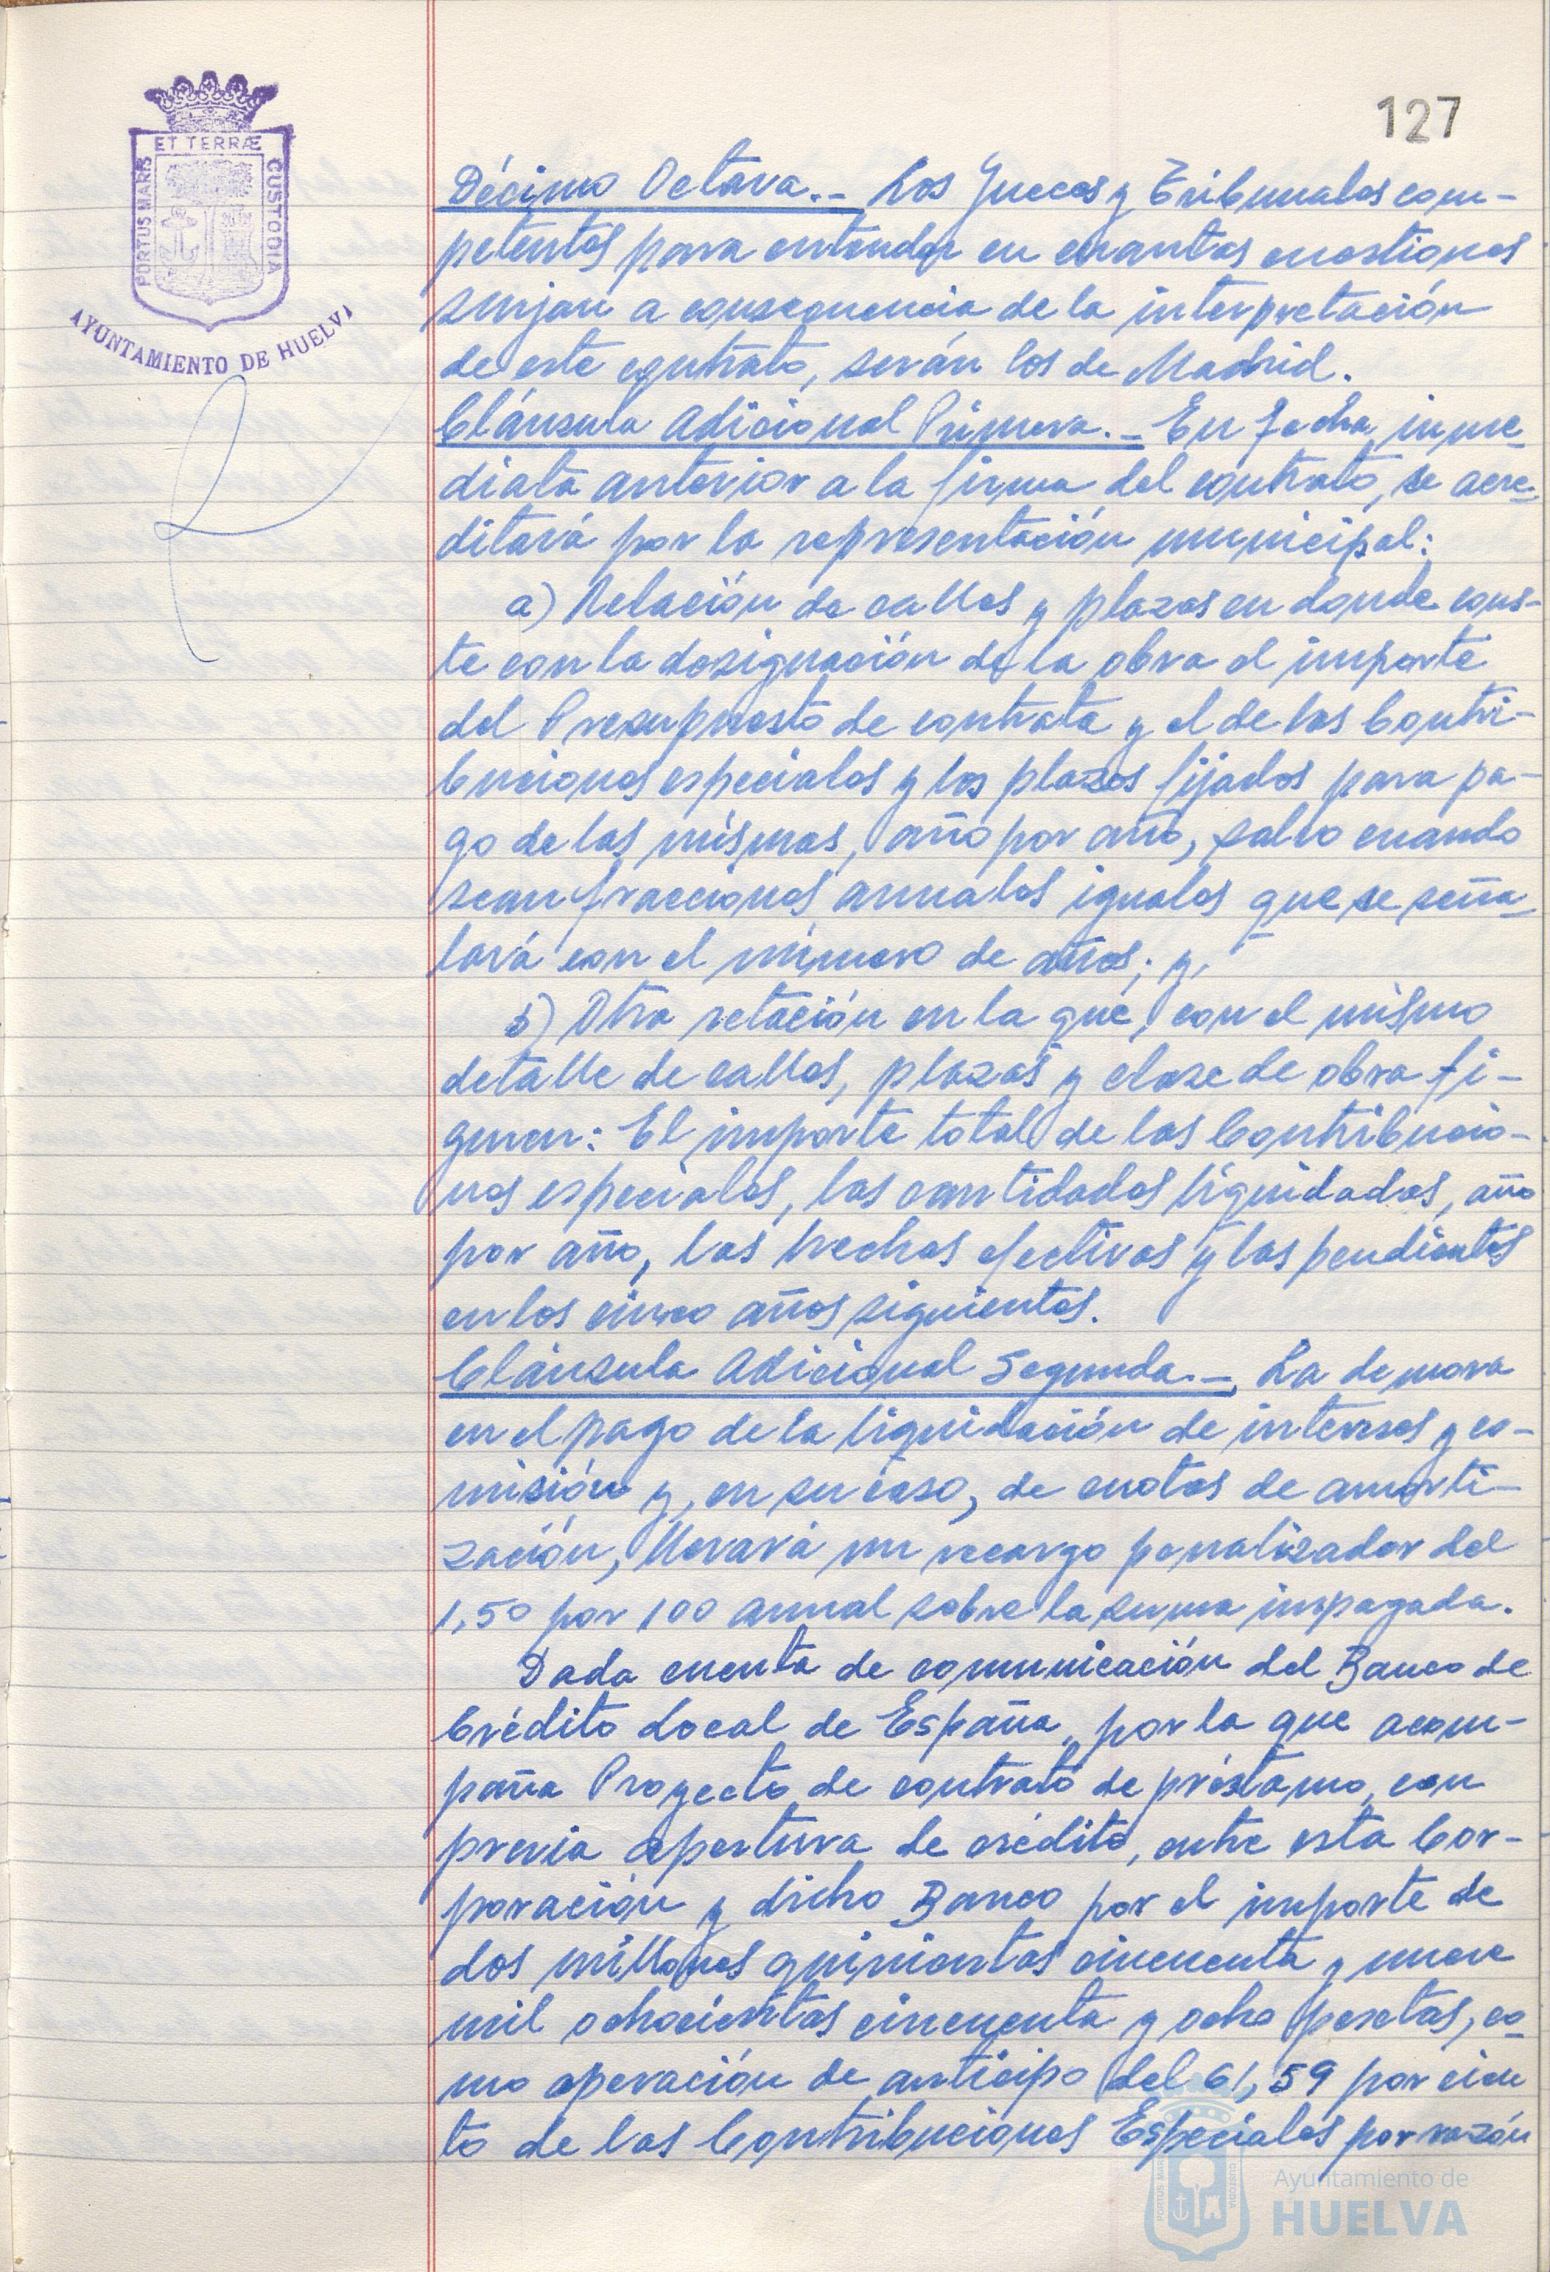 127
ET TERRÆ
PORTUS MARIS
CUSTODIA
AYUNTAMIENTO DE HUELVA
Décimo Octava.- Los Jueces y Tribunales com-
petentes para entender en cuantas cuestiones
surjan a consecuencia de la interpretación
de este contrato, serán los de Madrid.
Cláusula Adicional Primera.- En fecha inme-
diata anterior a la firma del contrato, se acre-
ditará por la representación municipal:
a) Relación de calles y plazas en donde cons-
te con la designación de la obra el importe
del Presupuesto de contrata y el de las Contri-
buciones especiales y los plazos fijados para pa-
go de las mismas, año por año, salvo cuando
sean fracciones anuales iguales que se seña-
lará con el número de años; y,
b) Otra relación en la que, con el mismo
detalle de calles, plazas y clase de obra fi-
guren: El importe total de las Contribucio-
nes especiales, las cantidades liquidadas, año
por año, las hechas efectivas y las pendientes
en los cinco años siguientes.
Cláusula Adicional Segunda.- La demora
en el pago de la liquidación de intereses y co-
misión y, en su caso, de cuotas de amorti-
zación, llevará un recargo penalizador del
1,50 por 100 anual sobre la suma impagada.
Dada cuenta de comunicación del Banco de
Crédito Local de España, por la que acom-
paña Proyecto de contrato de préstamo, con
previa apertura de crédito, entre esta Cor-
poración y dicho Banco por el importe de
dos millones quinientas cincuenta y nueve
mil ochocientas cincuenta y ocho pesetas, co-
mo operación de anticipo del 61,59 por cien
to de las Contribuciones Especiales por razón
Ayuntamiento de
HUELVA